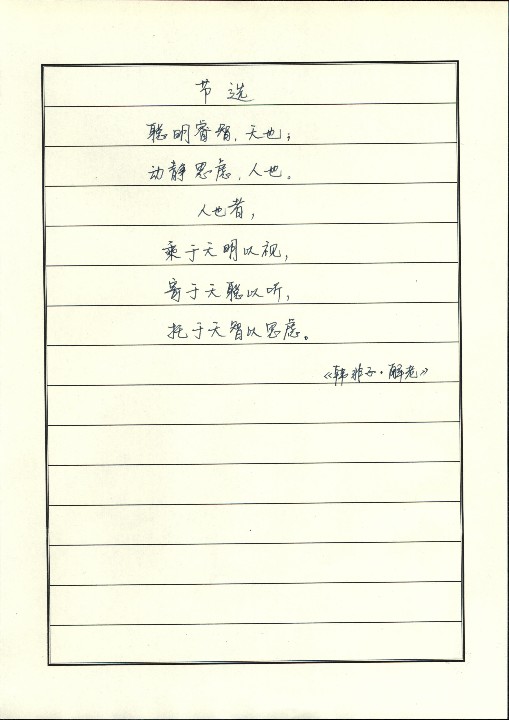 节选
聪明睿智，天也；
动静思虑，人也。
人也者，
乘于天明以视，
寄于天聪以听，
托于天智以思虑。
《韩非子·解老》